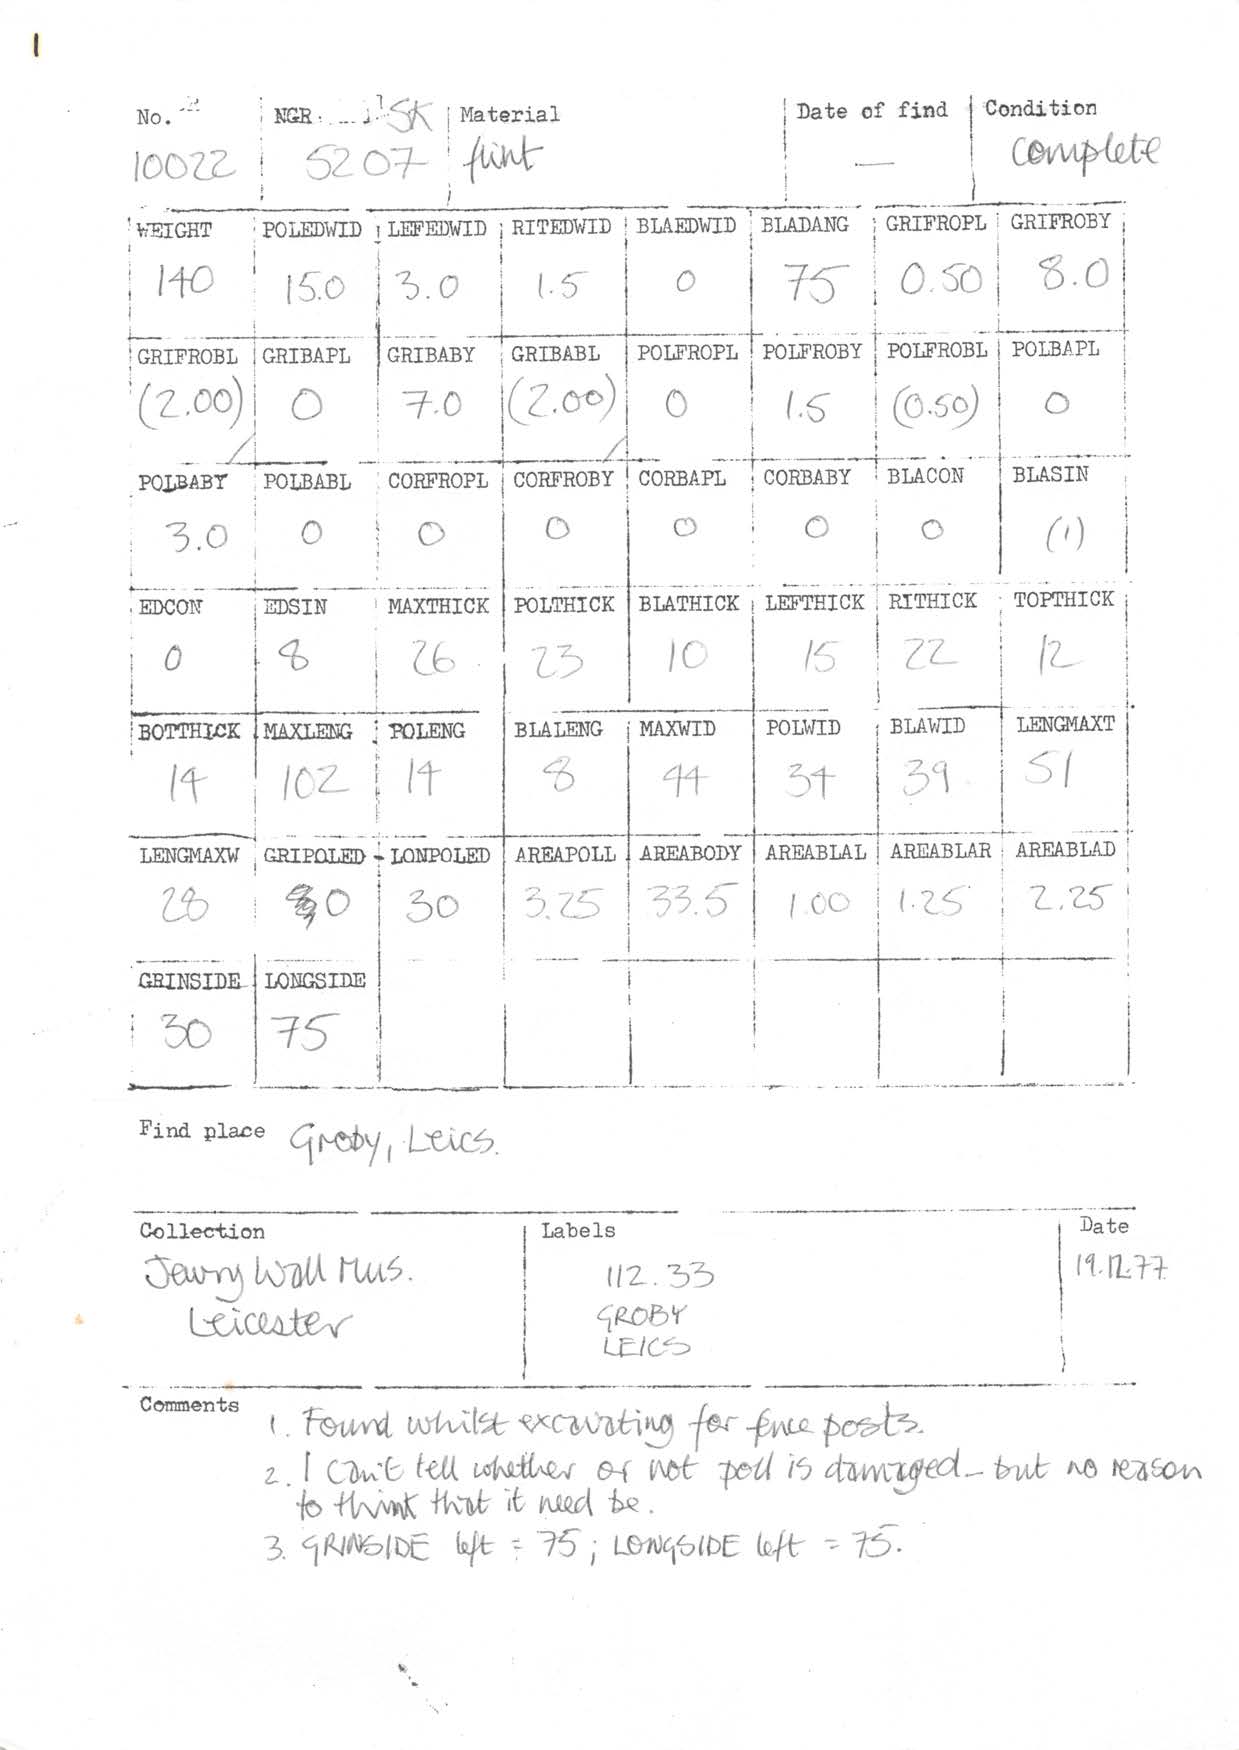 1
No. NGR SK Material Date of find Condition
10022 5207 flint — complete
WEIGHT POLEDWID LEFEDWID RITEDWID BLAEDWID BLADANG GRIFROPL GRIFROBY
140 15.0 3.0 1.5 0 75 0.50 8.0
GRIFROBL GRIBAPL GRIBABY GRIBABL POLFROPL POLFROBY POLFROBL POLBAPL
(2.00) 0 7.0 (2.00) 0 1.5 (0.50) 0
POLBABY POLBABL CORFROPL CORFROBY CORBAPL CORBABY BLACON BLASIN
3.0 0 0 0 0 0 0 (1)
EDCON EDSIN MAXTHICK POLTHICK BLATHICK LEFTHICK RITHICK TOPTHICK
0 8 26 23 10 15 22 12
BOTTHICK MAXLENG POLENG BLALENG MAXWID POLWID BLAWID LENGMAXT
14 102 14 8 44 34 39 51
LENGMAXW GRIPOLED LONPOLED AREAPOLL AREABODY AREABLAL AREABLAR AREABLAD
28 0 30 3.25 33.5 1.00 1.25 2.25
GRINSIDE LONGSIDE
30 75
Find place Groby, Leics.
Collection Labels Date
Jewry Wall Mus. 112.33 19.12.77
Leicester GROBY
LEICS
Comments 1. Found whilst excavating for fence posts.
2. I can't tell whether or not poll is damaged – but no reason
to think that it need be.
3. GRINSIDE left = 75; LONGSIDE left = 75.